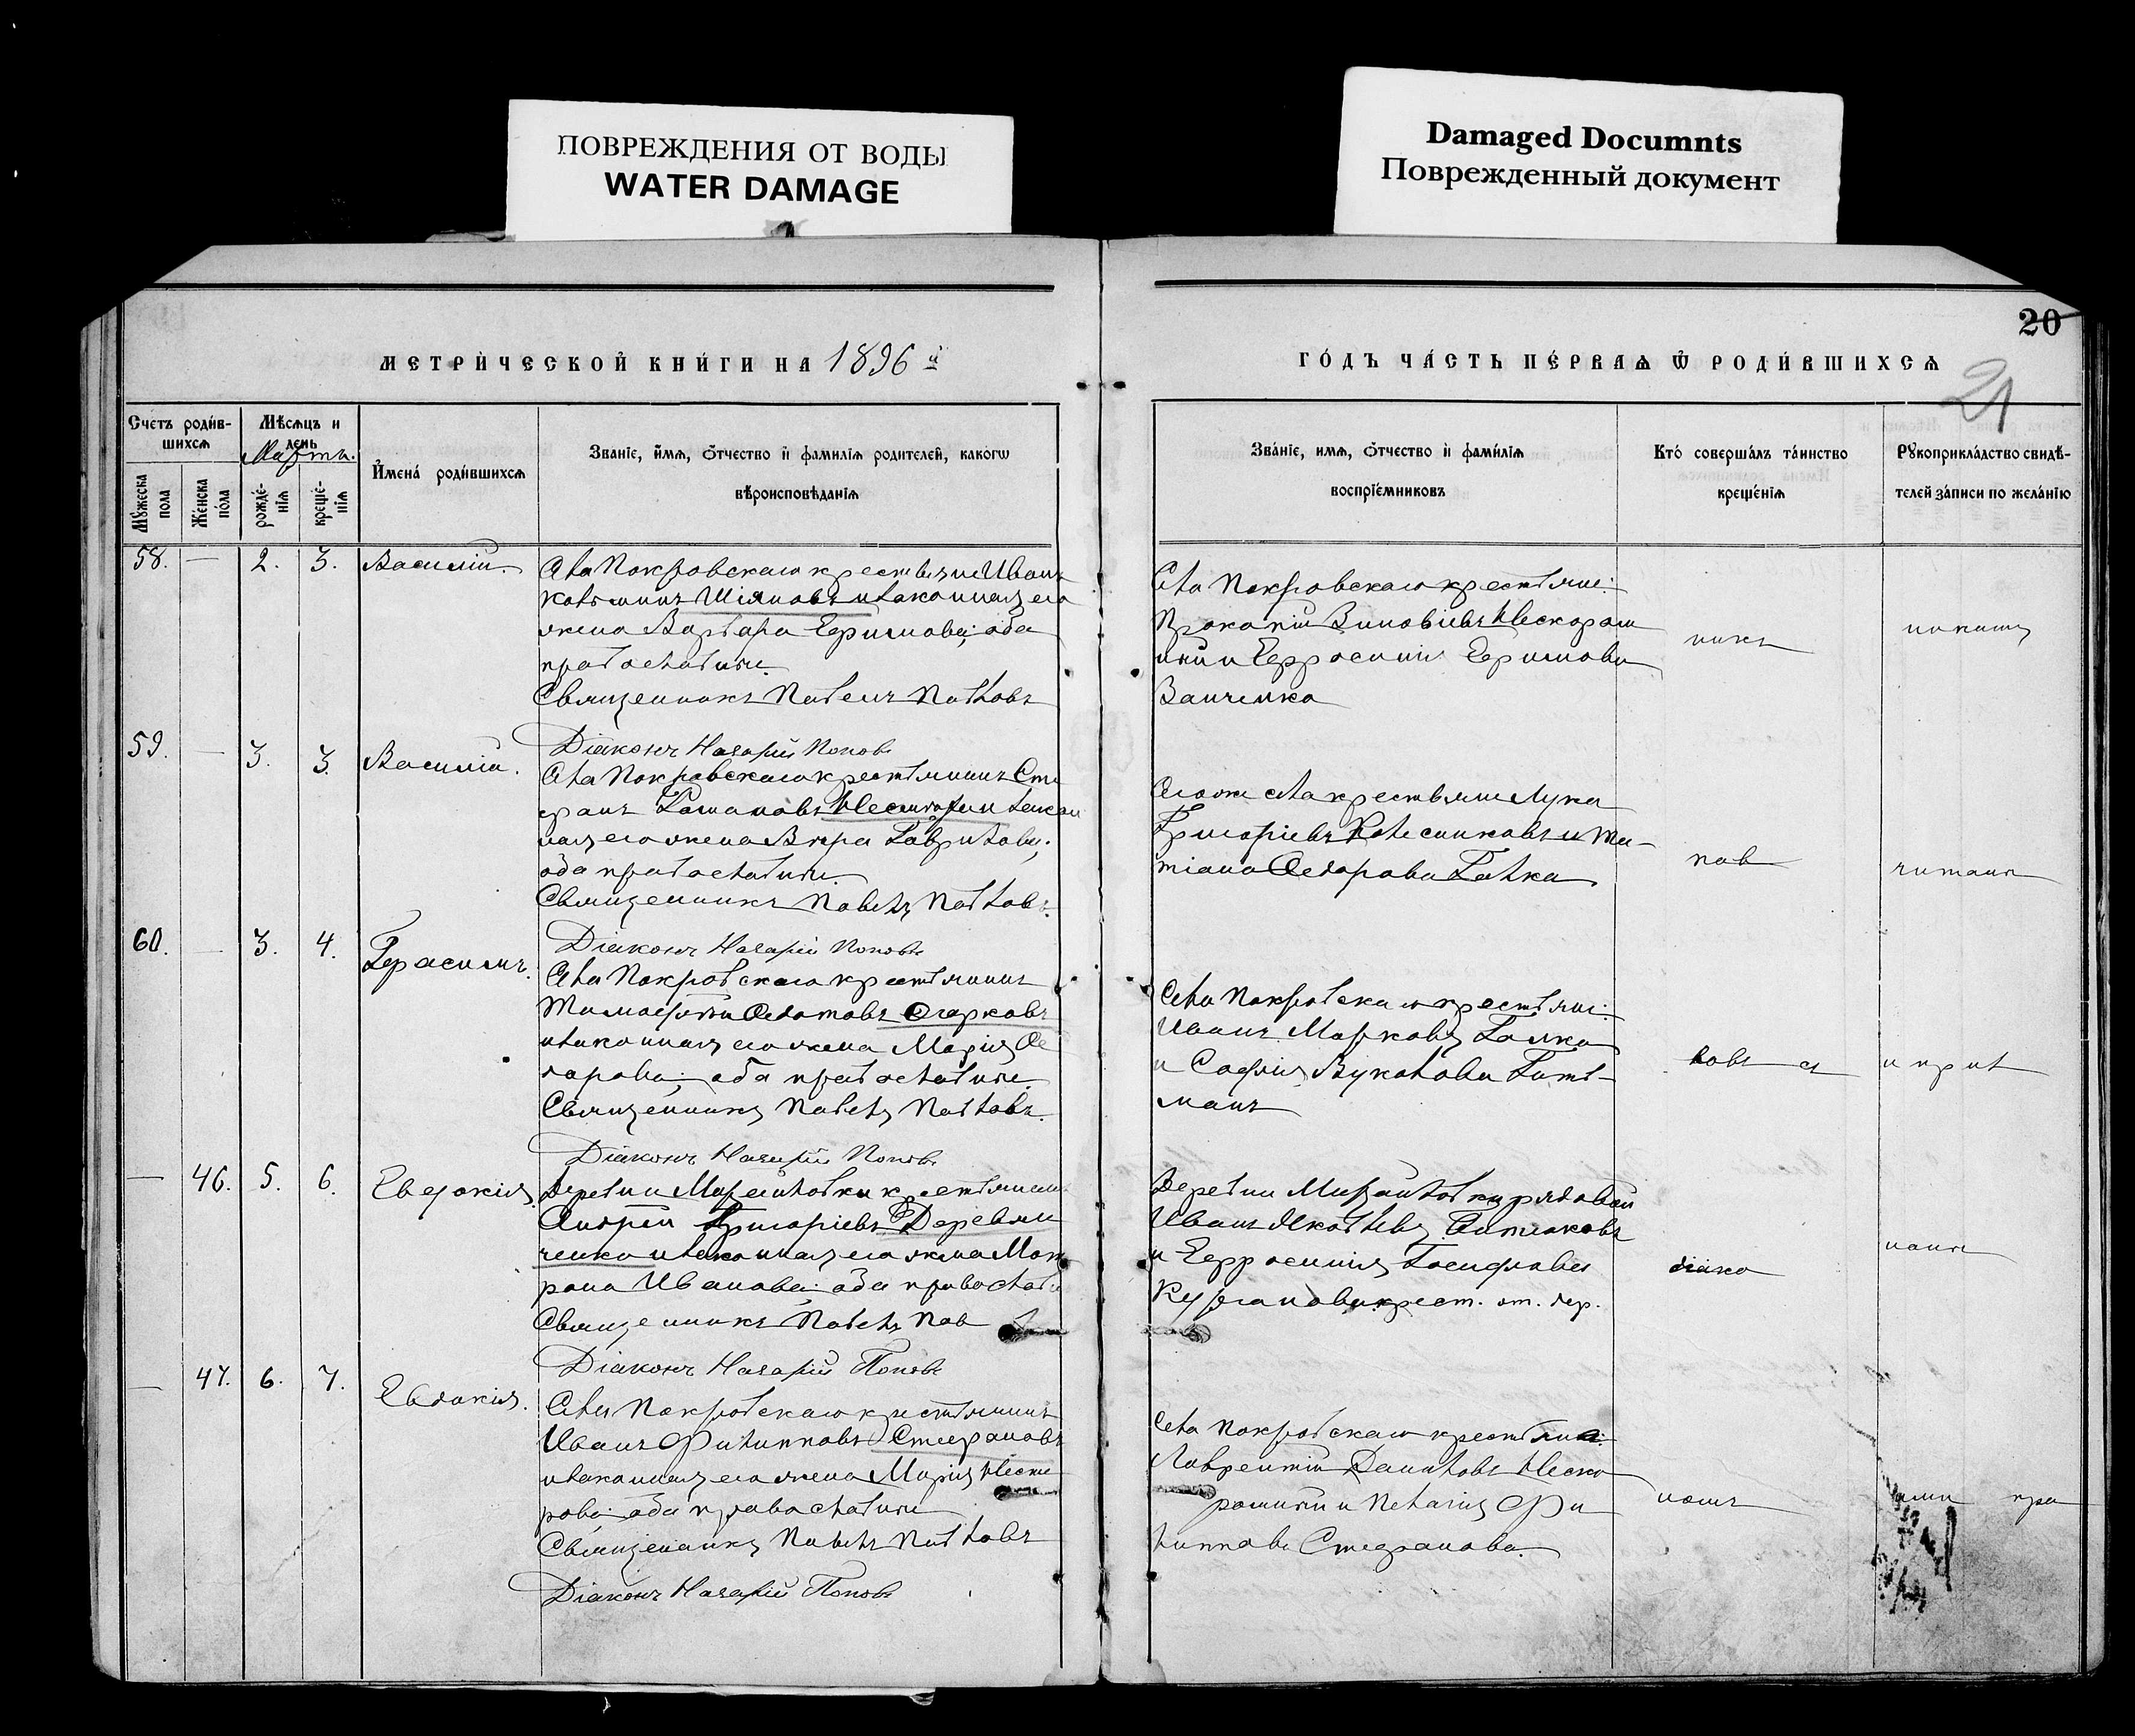 ПОВРЕЖДЕНИЯ ОТ ВОДЫ
WATER DAMAGE
Damaged Documnts
Поврежденный документ
20
21
МЕТРИ́ЧЕСКОЙ КНИ́ГИ НА 1896 й
ГО́ДЪ ЧА́СТЬ ПЕ́РВАѦ Ѡ҆ РОДИ́ВШИХСѦ
Счетъ роди́в-
шихсѧ
Мѣсѧцъ и
день
Марта.
Мꙋжеска
пола
Же́нска
по́ла
рожде́-
нїѧ
креще́-
нїѧ
И҆мена́ роди́вшихсѧ
Званїе, и҆́мѧ, ѻ҆́тчество и҆ фамилїѧ родителей, какогѡ
вѣроисповѣданїѧ
Зва́нїе, имѧ, ѻ҆́тчество и҆ фами́лїѧ
воспрїе́мниковъ
Кто́ соверша́лъ та́инство
креще́нїѧ
Рꙋкоприкла́дство свидѣ́-
телей за́писи по жела́нїю
58. — 2. 3. Василій.
Села Покровскаго крестьяне Иванъ
Косминъ Шіяновъ и законная его
жена Варвара Ефимова; оба
православные.
Священникъ Павелъ Павловъ
Діаконъ Назарій Поповъ
Села Покровскаго крестьяне:
Прокопій Зиновіевъ Нескором
ный и Евфросинія Ефимова
Занченко
никъ
никаци
59. — 3. 3. Василій.
Села Покровскаго крестьянинъ Сте
фанъ Романовъ и закон
ная его жена Вѣра Гаврилова;
оба православные.
Священникъ Павелъ Павловъ.
Діаконъ Назарій Поповъ
Того же села крестьяне Лука
Григоріевъ Колесниковъ и Та-
тіана Ѳедорова Галка.
пав
60. — 3. 4. Герасимъ.
Села Покровскаго крестьянинъ
Тимофей Ѳедотовъ Огарковъ
и законная его жена Марія Ѳе
дорова; оба православные.
Священникъ Павелъ Павловъ.
Діаконъ Назарій Поповъ
Села Покровскаго крестьяне:
Иванъ Марковъ
и Софія
манъ
ловъ съ
— 46. 5. 6. Евдокія.
Деревни Михайловки крестьянинъ
Андрей Григоріевъ Деревян
ченко и законная его жена Мат
рона Иванова; оба православ
Священникъ Павелъ Пав
Діаконъ Назарій Поповъ
Деревни Михайловки рядовой
Иванъ Яковлевъ
и Евфросинія Іосифова
Курганова крест. от. дер.
діако
— 47. 6. 7. Евдокія.
Села Покровскаго крестьянинъ
Иванъ Филипповъ Стефановъ
и законная его жена Марія
рова; оба православные
Священникъ Павелъ Павловъ
Діаконъ Назарій Поповъ
Села Покровскаго крестьяне:
Лаврентій Даниловъ Неско
ромный и Пелагія Фи
липпова Стефанова.
номъ